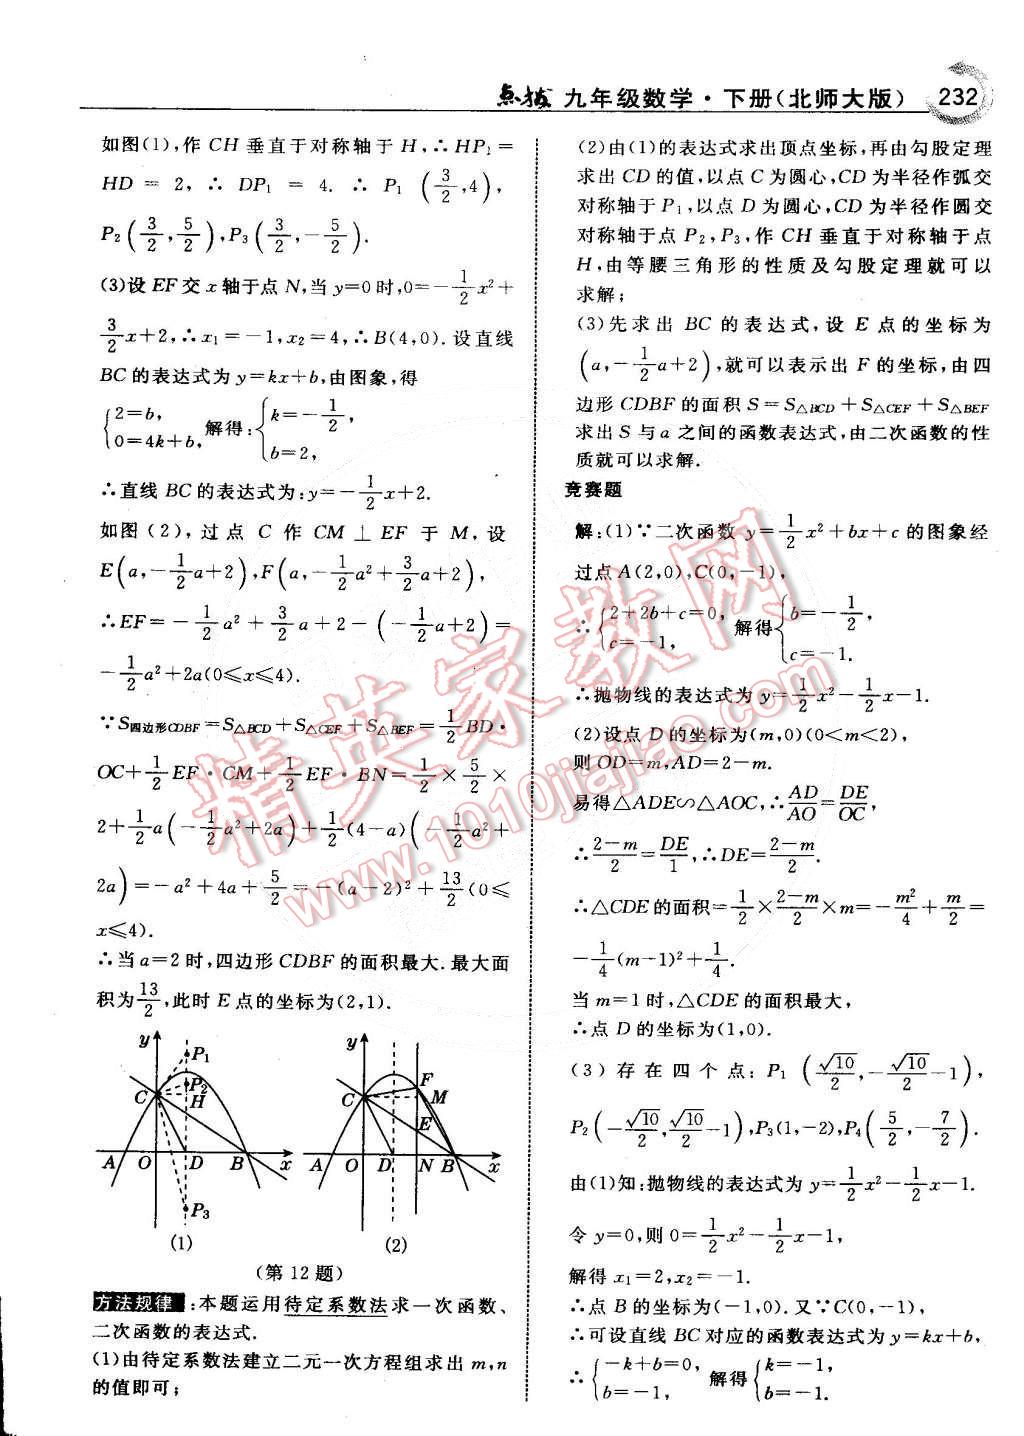 点拨 九年级数学·下册(北师大版) 232
如图(1),作 CH 垂直于对称轴于 H,∴HP₁=
HD = 2, ∴ DP₁ = 4. ∴ P₁ (3/2,4),
P₂(3/2,5/2),P₃(3/2,-5/2).
(3)设 EF 交 x 轴于点 N,当 y=0 时,0=-1/2x²+
3/2x+2,∴x₁=-1,x₂=4,∴B(4,0). 设直线
BC 的表达式为 y=kx+b,由图象,得
{2=b, 0=4k+b, 解得:{k=-1/2, b=2,
∴直线 BC 的表达式为:y=-1/2x+2.
如图 (2), 过 点 C 作 CM ⊥ EF 于 M, 设
E(a,-1/2a+2),F(a,-1/2a²+3/2a+2),
∴EF=-1/2a²+3/2a+2-(-1/2a+2)=
-1/2a²+2a(0≤x≤4).
∵S四边形CDBF=S△BCD+S△CEF+S△BEF=1/2BD·
OC+1/2EF·CM+1/2EF·BN=1/2×5/2×
2+1/2a(-1/2a²+2a)+1/2(4-a)(-1/2a²+
2a)=-a²+4a+5/2=-(a-2)²+13/2(0≤
x≤4).
∴当 a=2 时,四边形 CDBF 的面积最大. 最大面
积为13/2,此时 E 点的坐标为(2,1).
y P₁ P₂ C H A O D B x P₃
(1)
y F C M E A O D N B x
(2)
(第 12 题)
方法规律:本题运用待定系数法求一次函数、
二次函数的表达式.
(1)由待定系数法建立二元一次方程组求出 m,n
的值即可;
(2)由(1)的表达式求出顶点坐标,再由勾股定理
求出 CD 的值,以点 C 为圆心,CD 为半径作弧交
对称轴于 P₁,以点 D 为圆心,CD 为半径作圆交
对称轴于点 P₂,P₃,作 CH 垂直于对称轴于点
H,由等腰三角形的性质及勾股定理就可以
求解;
(3)先求出 BC 的表达式,设 E 点的坐标为
(a,-1/2a+2),就可以表示出 F 的坐标,由四
边形 CDBF 的面积 S=S△BCD+S△CEF+S△BEF
求出 S 与 a 之间的函数表达式,由二次函数的性
质就可以求解.
竞赛题
解:(1)∵二次函数 y=1/2x²+bx+c 的图象经
过点 A(2,0),C(0,-1),
∴{2+2b+c=0, c=-1, 解得{b=-1/2, c=-1.
∴抛物线的表达式为 y=1/2x²-1/2x-1.
(2)设点 D 的坐标为(m,0)(0<m<2),
则 OD=m,AD=2-m.
易得△ADE∽△AOC,∴AD/AO=DE/OC,
∴2-m/2=DE/1,∴DE=2-m/2.
∴△CDE 的面积=1/2×2-m/2×m=-m²/4+m/2=
-1/4(m-1)²+1/4.
当 m=1 时,△CDE 的面积最大,
∴点 D 的坐标为(1,0).
(3) 存 在 四 个 点: P₁ (√10/2,-√10/2-1),
P₂(-√10/2,√10/2-1),P₃(1,-2),P₄(5/2,-7/2).
由(1)知:抛物线的表达式为 y=1/2x²-1/2x-1.
令 y=0,则 0=1/2x²-1/2x-1,
解得 x₁=2,x₂=-1.
∴点 B 的坐标为(-1,0). 又∵C(0,-1),
∴可设直线 BC 对应的函数表达式为 y=kx+b,
∴{-k+b=0, b=-1, 解得{k=-1, b=-1.
精英家教网
www.1010jiajiao.com